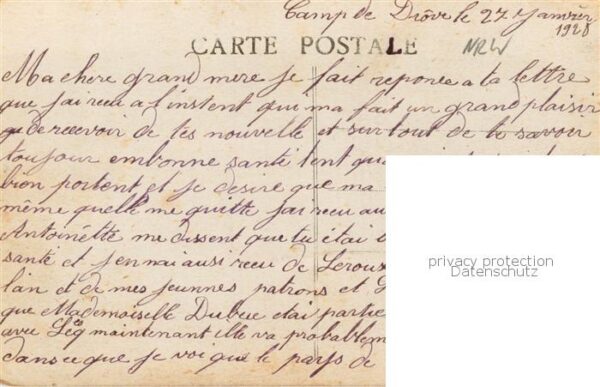 Camp de Drove le 27 Janvier
1920
CARTE POSTALE
NRW
Ma chere grand mere je fait reponse a ta lettre
que j'ai recu a l'instent qui ma fait un grand plaisir
de recevoir de tes nouvelle et surtout de te savoir
toujour enbonne santé tent que
bien portent et je désire que ma
même quelle me quitte j'ai recu au
Antoinétte me dissent que tu étai
santé et j'en nai aussi recu de Leroux
lain et de mes jeunnes patrons et
que Mademoiselle Dubue etai partie
avec Léo maintenant elle va probablemen
dans ce que je voi que le pays de
privacy protection
Datenschutz